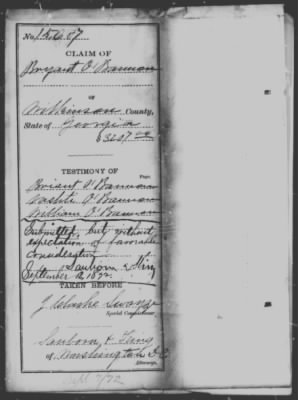 No. 15687
CLAIM OF
Bryant O'Bannon
OF
Wilkinson County,
State of Georgia
$3207.00
TESTIMONY OF
Page
Briant O'Bannon
Vashti O'Bannon
William O'Bannon
Submitted, but without
expectation of favorable
consideration
Sanborn & King
September 12, 1872.
TAKEN BEFORE
Swayze
Special Commissioner
Sanborn & King
of Washington D.C.
Attorneys.